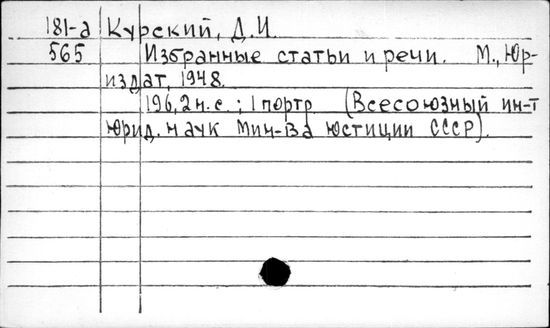 181-а Курский, Д.И.
565 Избранные статьи и речи. М., Юр-
издат, 1948.
196, 2 н.с.; 1 портр (Всесоюзный ин-т
юрид. наук Мин-ва юстиции СССР).